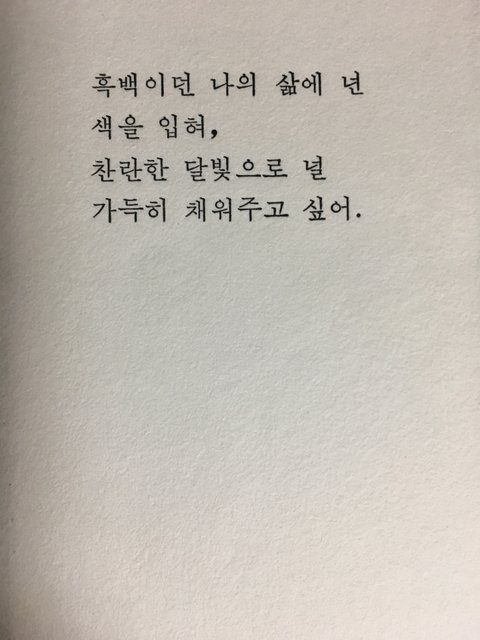 흑백이던 나의 삶에 넌
색을 입혀,
찬란한 달빛으로 널
가득히 채워주고 싶어.